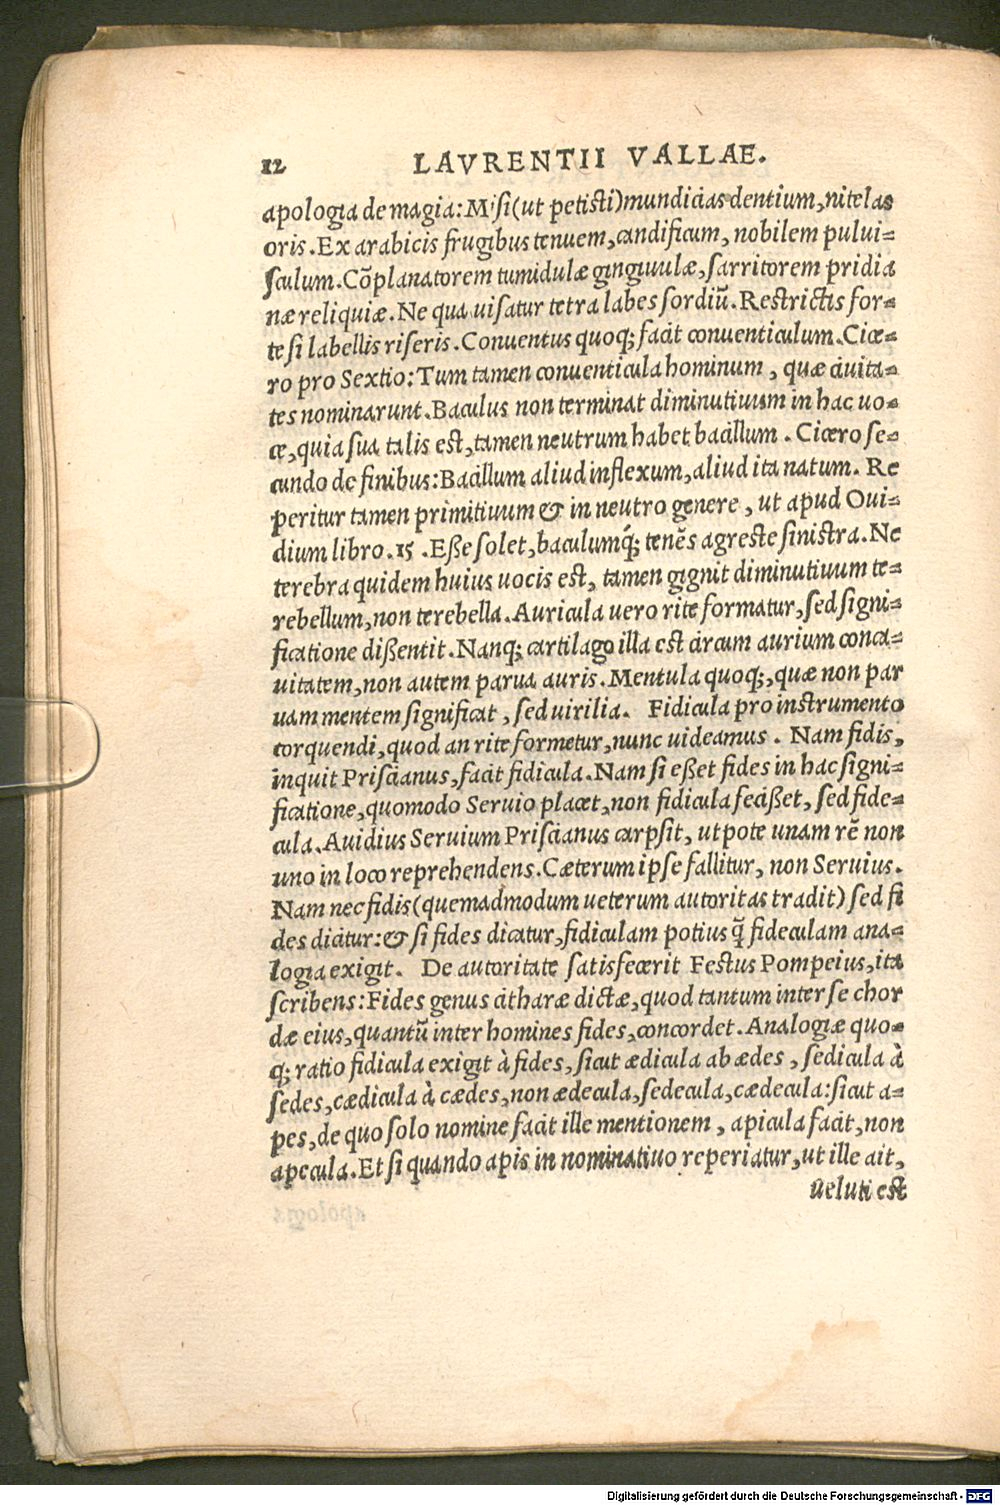 12 LAVRENTII VALLAE.
apologia de magia: Misi (ut petisti) mundicias dentium, nitelas
oris. Ex arabicis frugibus tenuem, candificum, nobilem pului=
sculum. Cõplanatorem tumidulæ gingiuulæ, sarritorem pridia
næ reliquiæ. Ne qua uisatur tetra labes sordiũ. Restrictis for=
te si labellis riseris. Conuentus quoq; facit conuenticulum. Cice=
ro pro Sextio: Tum tamen conuenticula hominum, quæ ciuita=
tes nominarunt. Baculus non terminat diminutiuum in hac uo=
ce, quia sua talis est, tamen neutrum habet bacillum. Cicero se=
cundo de finibus: Bacillum aliud inflexum, aliud ita natum. Re
peritur tamen primitiuum & in neutro genere, ut apud Oui=
dium libro. 15. Eße solet, baculumq́; tenẽs agreste sinistra. Ne
terebra quidem huius uocis est, tamen gignit diminutiuum te=
rebellum, non terebella. Auricula uero rite formatur, sed signi=
ficatione dißentit. Nanq; cartilago illa est circum aurium conca=
uitatem, non autem parua auris. Mentula quoq;, quæ non par
uam mentem significat, sed uirilia. Fidicula pro instrumento
torquendi, quod an rite formetur, nunc uideamus. Nam fidis,
inquit Priscianus, facit fidicula. Nam si eßet fides in hac signi=
ficatione, quomodo Seruio placet, non fidicula fecißet, sed fide=
cula. Auidius Seruium Priscianus carpsit, utpote unam rẽ non
uno in loco reprehendens. Cæterum ipse fallitur, non Seruius.
Nam nec fidis (quemadmodum ueterum autoritas tradit) sed fi
des dicitur: & si fides dicatur, fidiculam potius q̃ fideculam ana=
logia exigit. De autoritate satisfecerit Festus Pompeius, ita
scribens: Fides genus citharæ dictæ, quod tantum inter se chor
dæ eius, quantũ inter homines fides, concordet. Analogiæ quo=
q; ratio fidicula exigit à fides, sicut ædicula ab ædes, sedicula à
sedes, cædicula à cædes, non ædecula, sedecula, cædecula: sicut a=
pes, de quo solo nomine facit ille mentionem, apicula facit, non
apecula. Et si quando apis in nominatiuo reperiatur, ut ille ait,
ueluti est
Digitalisierung gefördert durch die Deutsche Forschungsgemeinschaft - DFG